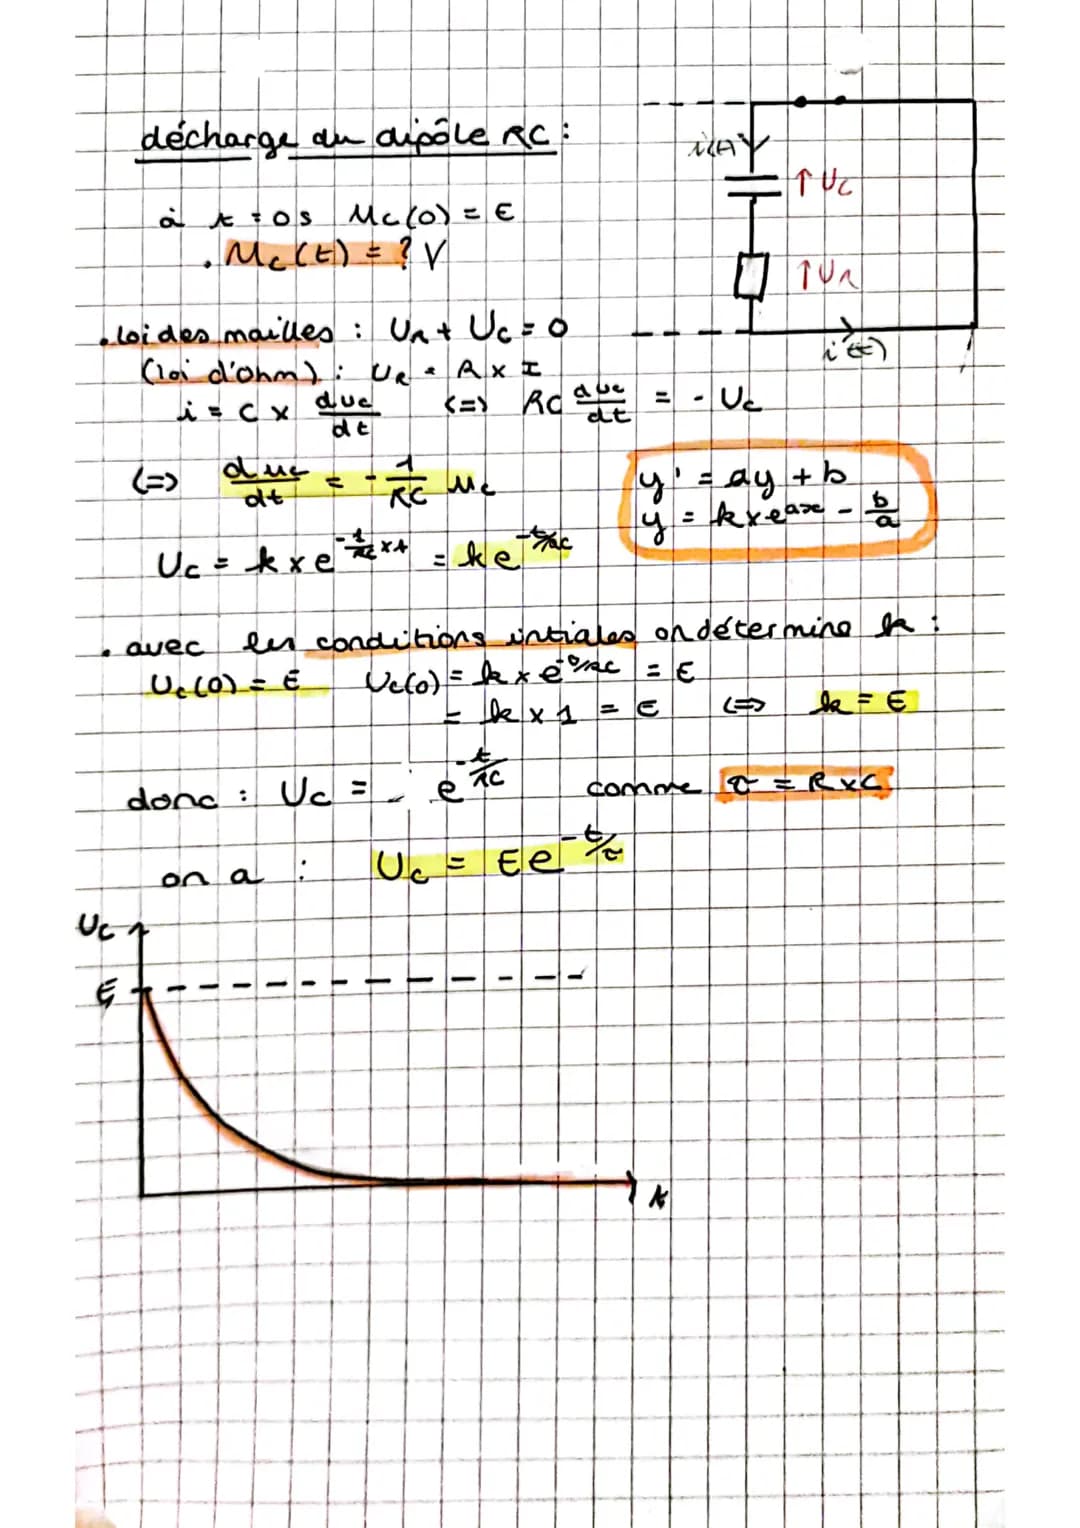 décharge du dipôle RC :
i(t)
↑ Uc
à t = 0 s Uc(0) = E
. Uc(t) = ? V
↑ UR
. loi des mailles : UR + Uc = 0
i(t)
(loi d'Ohm) : UR = R x I
i = C x duc/dt <=> RC duc/dt = - Uc
<=> duc/dt = - 1/RC uc
y' = ay + b
y = k x e^ax - b/a
Uc = k x e^-1/RC x t = k e^-t/RC
. avec les conditions intiales on détermine k :
Uc(0) = E Uc(0) = k x e^-0/RC = E
= k x 1 = E <=> k = E
donc : Uc = e^-t/RC comme τ = R x C
on a : Uc = E e^-t/τ
Uc
E
t